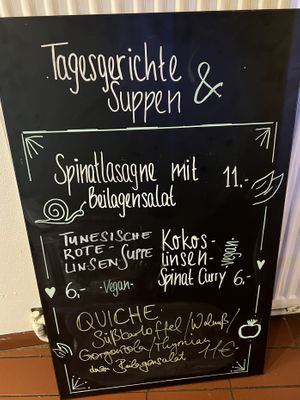 Tagesgerichte &
Suppen
Spinatlasagne mit 11.-
Beilagensalat
TUNESISCHE
ROTE-
LINSENSUPPE
6.- -Vegan-
Kokos-
linsen-
Spinat Curry 6.-
-Vegan-
QUICHE
Süßkartoffel/Walnuß/
Gorgonzola/Thymian
dazu Beilagensalat 11€